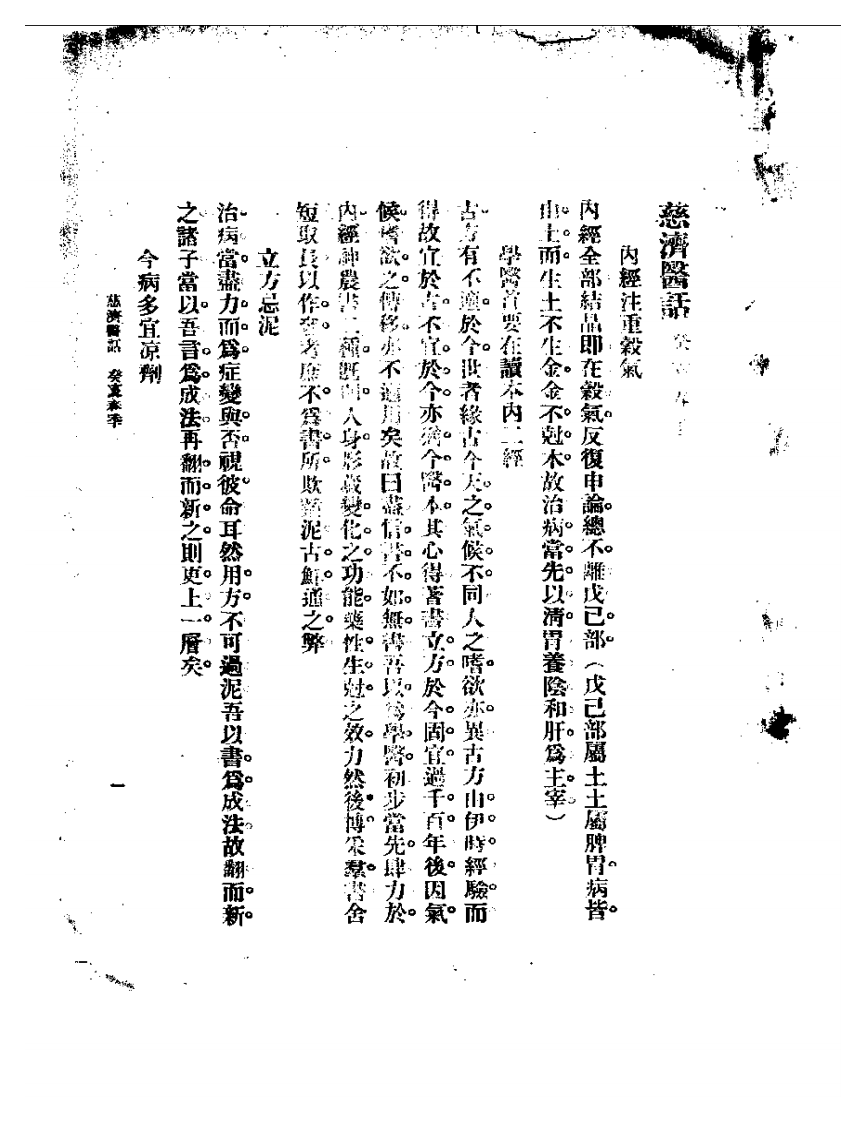 慈濟醫話 癸亥春季
內經注重穀氣
內經全部結晶即在穀氣反復申論。總不離戊己部（戊己部屬土土屬脾胃。病皆。
由土而生土不生金金不尅木故治病當先以清胃養陰和肝爲主宰）
學醫首要在讀本內二經
古方有不適於今世者緣古今天之氣候不同人之嗜欲亦異古方由伊時經驗而
得故宜於古不宜於今亦猶今醫本其心得著書立方於今固宜過千百年後因氣
候嗜欲之傳移亦不適用矣故曰盡信書不如無書吾以爲學醫初步當先肆力於
內經神農書二種既明人身形藏變化之功能藥性生尅之效力然後博采羣書舍
短取長以作參考庶不爲書所欺 泥古鮮通之弊
立方忌泥
治病當盡力而爲症變與否視彼命耳然用方不可過泥吾以書爲成法故翻而新
之諸子當以吾言爲成法再翻而新之則更上一層矣。
今病多宜凉劑
慈濟醫話 癸亥春季
一